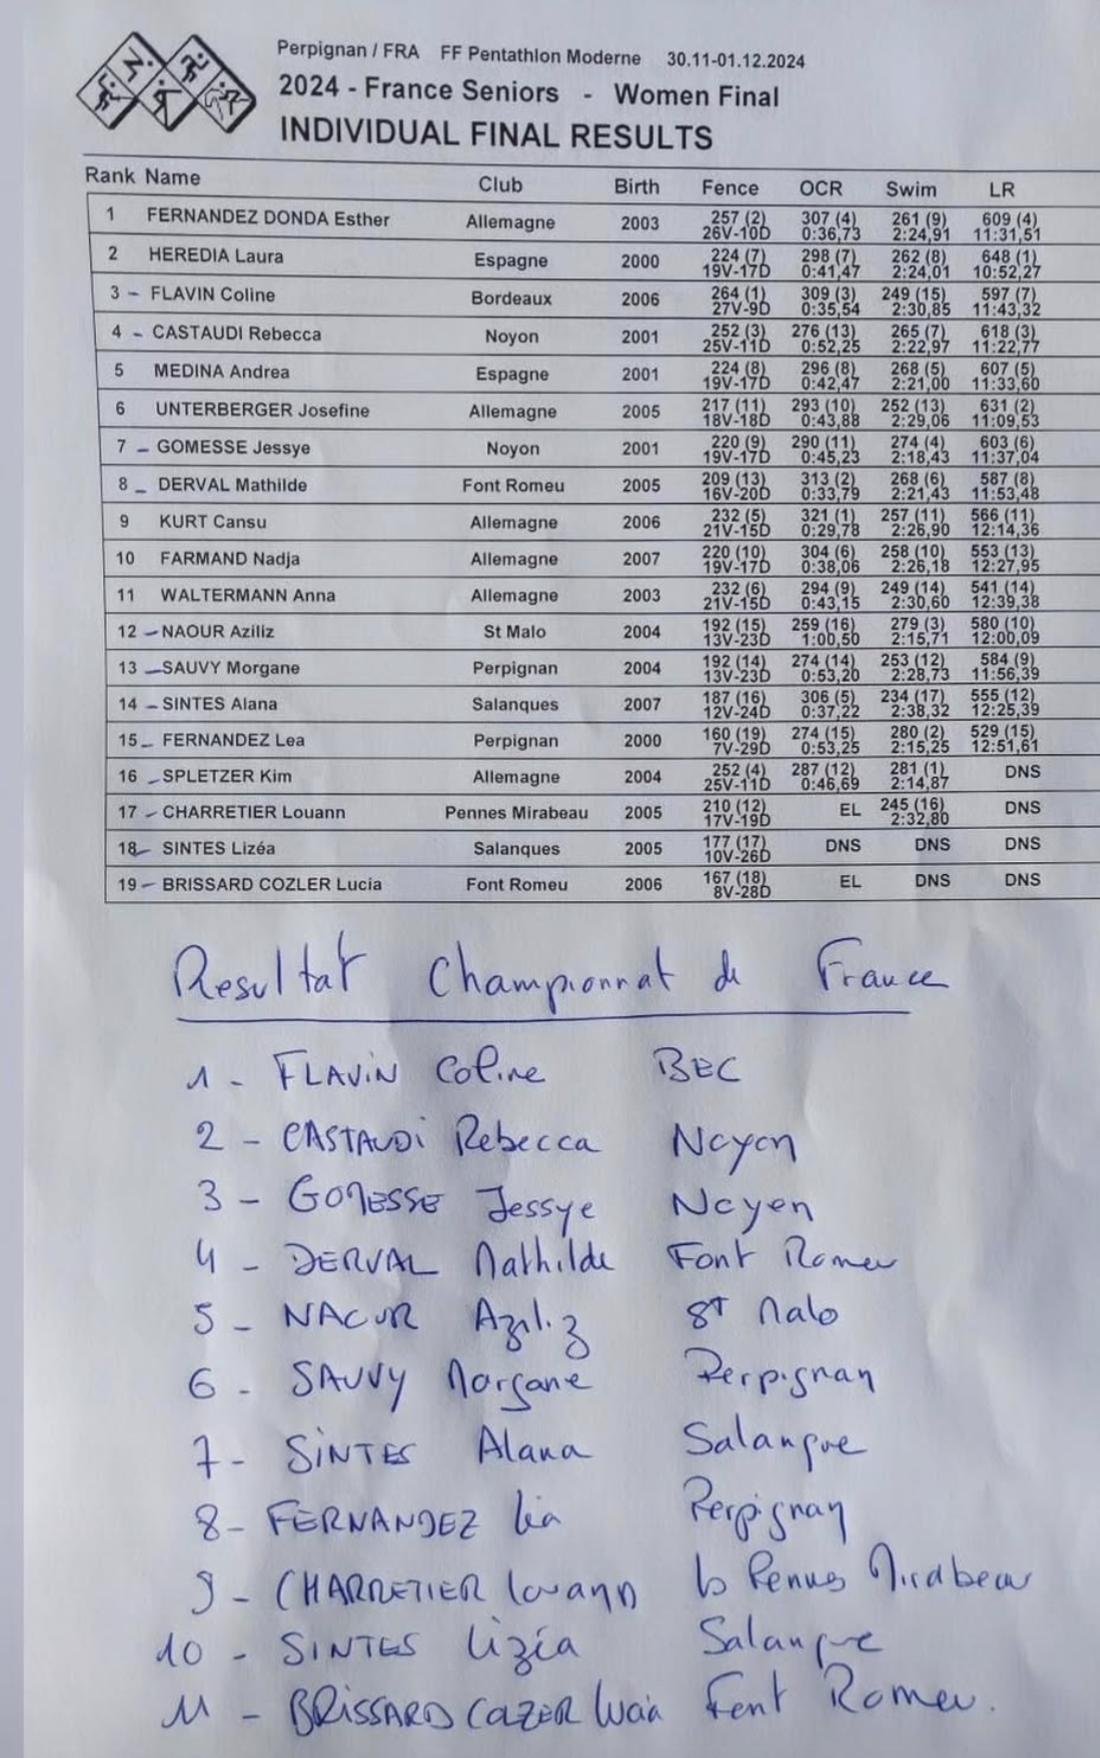 Perpignan / FRA FF Pentathlon Moderne 30.11-01.12.2024
2024 - France Seniors - Women Final
INDIVIDUAL FINAL RESULTS
Rank Name Club Birth Fence OCR Swim LR
1 FERNANDEZ DONDA Esther Allemagne 2003 257 (2) 307 (4) 261 (9) 609 (4)
26V-10D 0:36,73 2:24,91 11:31,51
2 HEREDIA Laura Espagne 2000 224 (7) 298 (7) 262 (8) 648 (1)
19V-17D 0:41,47 2:24,01 10:52,27
3 - FLAVIN Coline Bordeaux 2006 264 (1) 309 (3) 249 (15) 597 (7)
27V-9D 0:35,54 2:30,85 11:43,32
4 - CASTAUDI Rebecca Noyon 2001 252 (3) 276 (13) 265 (7) 618 (3)
25V-11D 0:52,25 2:22,97 11:22,77
5 MEDINA Andrea Espagne 2001 224 (8) 296 (8) 268 (5) 607 (5)
19V-17D 0:42,47 2:21,00 11:33,60
6 UNTERBERGER Josefine Allemagne 2005 217 (11) 293 (10) 252 (13) 631 (2)
18V-18D 0:43,88 2:29,06 11:09,53
7 - GOMESSE Jessye Noyon 2001 220 (9) 290 (11) 274 (4) 603 (6)
19V-17D 0:45,23 2:18,43 11:37,04
8 - DERVAL Mathilde Font Romeu 2005 209 (13) 313 (2) 268 (6) 587 (8)
16V-20D 0:33,79 2:21,43 11:53,48
9 KURT Cansu Allemagne 2006 232 (5) 321 (1) 257 (11) 566 (11)
21V-15D 0:29,78 2:26,90 12:14,36
10 FARMAND Nadja Allemagne 2007 220 (10) 304 (6) 258 (10) 553 (13)
19V-17D 0:38,06 2:26,18 12:27,95
11 WALTERMANN Anna Allemagne 2003 232 (6) 294 (9) 249 (14) 541 (14)
21V-15D 0:43,15 2:30,60 12:39,38
12 - NAOUR Aziliz St Malo 2004 192 (15) 259 (16) 279 (3) 580 (10)
13V-23D 1:00,50 2:15,71 12:00,09
13 - SAUVY Morgane Perpignan 2004 192 (14) 274 (14) 253 (12) 584 (9)
13V-23D 0:53,20 2:28,73 11:56,39
14 - SINTES Alana Salanques 2007 187 (16) 306 (5) 234 (17) 555 (12)
12V-24D 0:37,22 2:38,32 12:25,39
15 - FERNANDEZ Lea Perpignan 2000 160 (19) 274 (15) 280 (2) 529 (15)
7V-29D 0:53,25 2:15,25 12:51,61
16 - SPLETZER Kim Allemagne 2004 252 (4) 287 (12) 281 (1) DNS
25V-11D 0:46,69 2:14,87
17 - CHARRETIER Louann Pennes Mirabeau 2005 210 (12) EL 245 (16) DNS
17V-19D 2:32,80
18 - SINTES Lizéa Salanques 2005 177 (17) DNS DNS DNS
10V-26D
19 - BRISSARD COZLER Lucia Font Romeu 2006 167 (18) EL DNS DNS
8V-28D
Resultat Championnat de France
1 - FLAVIN Coline BEC
2 - CASTAUDI Rebecca Noyon
3 - GOMESSE Jessye Noyen
4 - DERVAL Mathilde Font Romeu
5 - NAOUR Aziliz St Malo
6 - SAUVY Morgane Perpignan
7 - SINTES Alana Salanque
8 - FERNANDEZ Léa Perpignan
9 - CHARRETIER Louann Les Pennes Mirabeau
10 - SINTES Lizéa Salanque
11 - BRISSARD COZER Lucia Font Romeu.